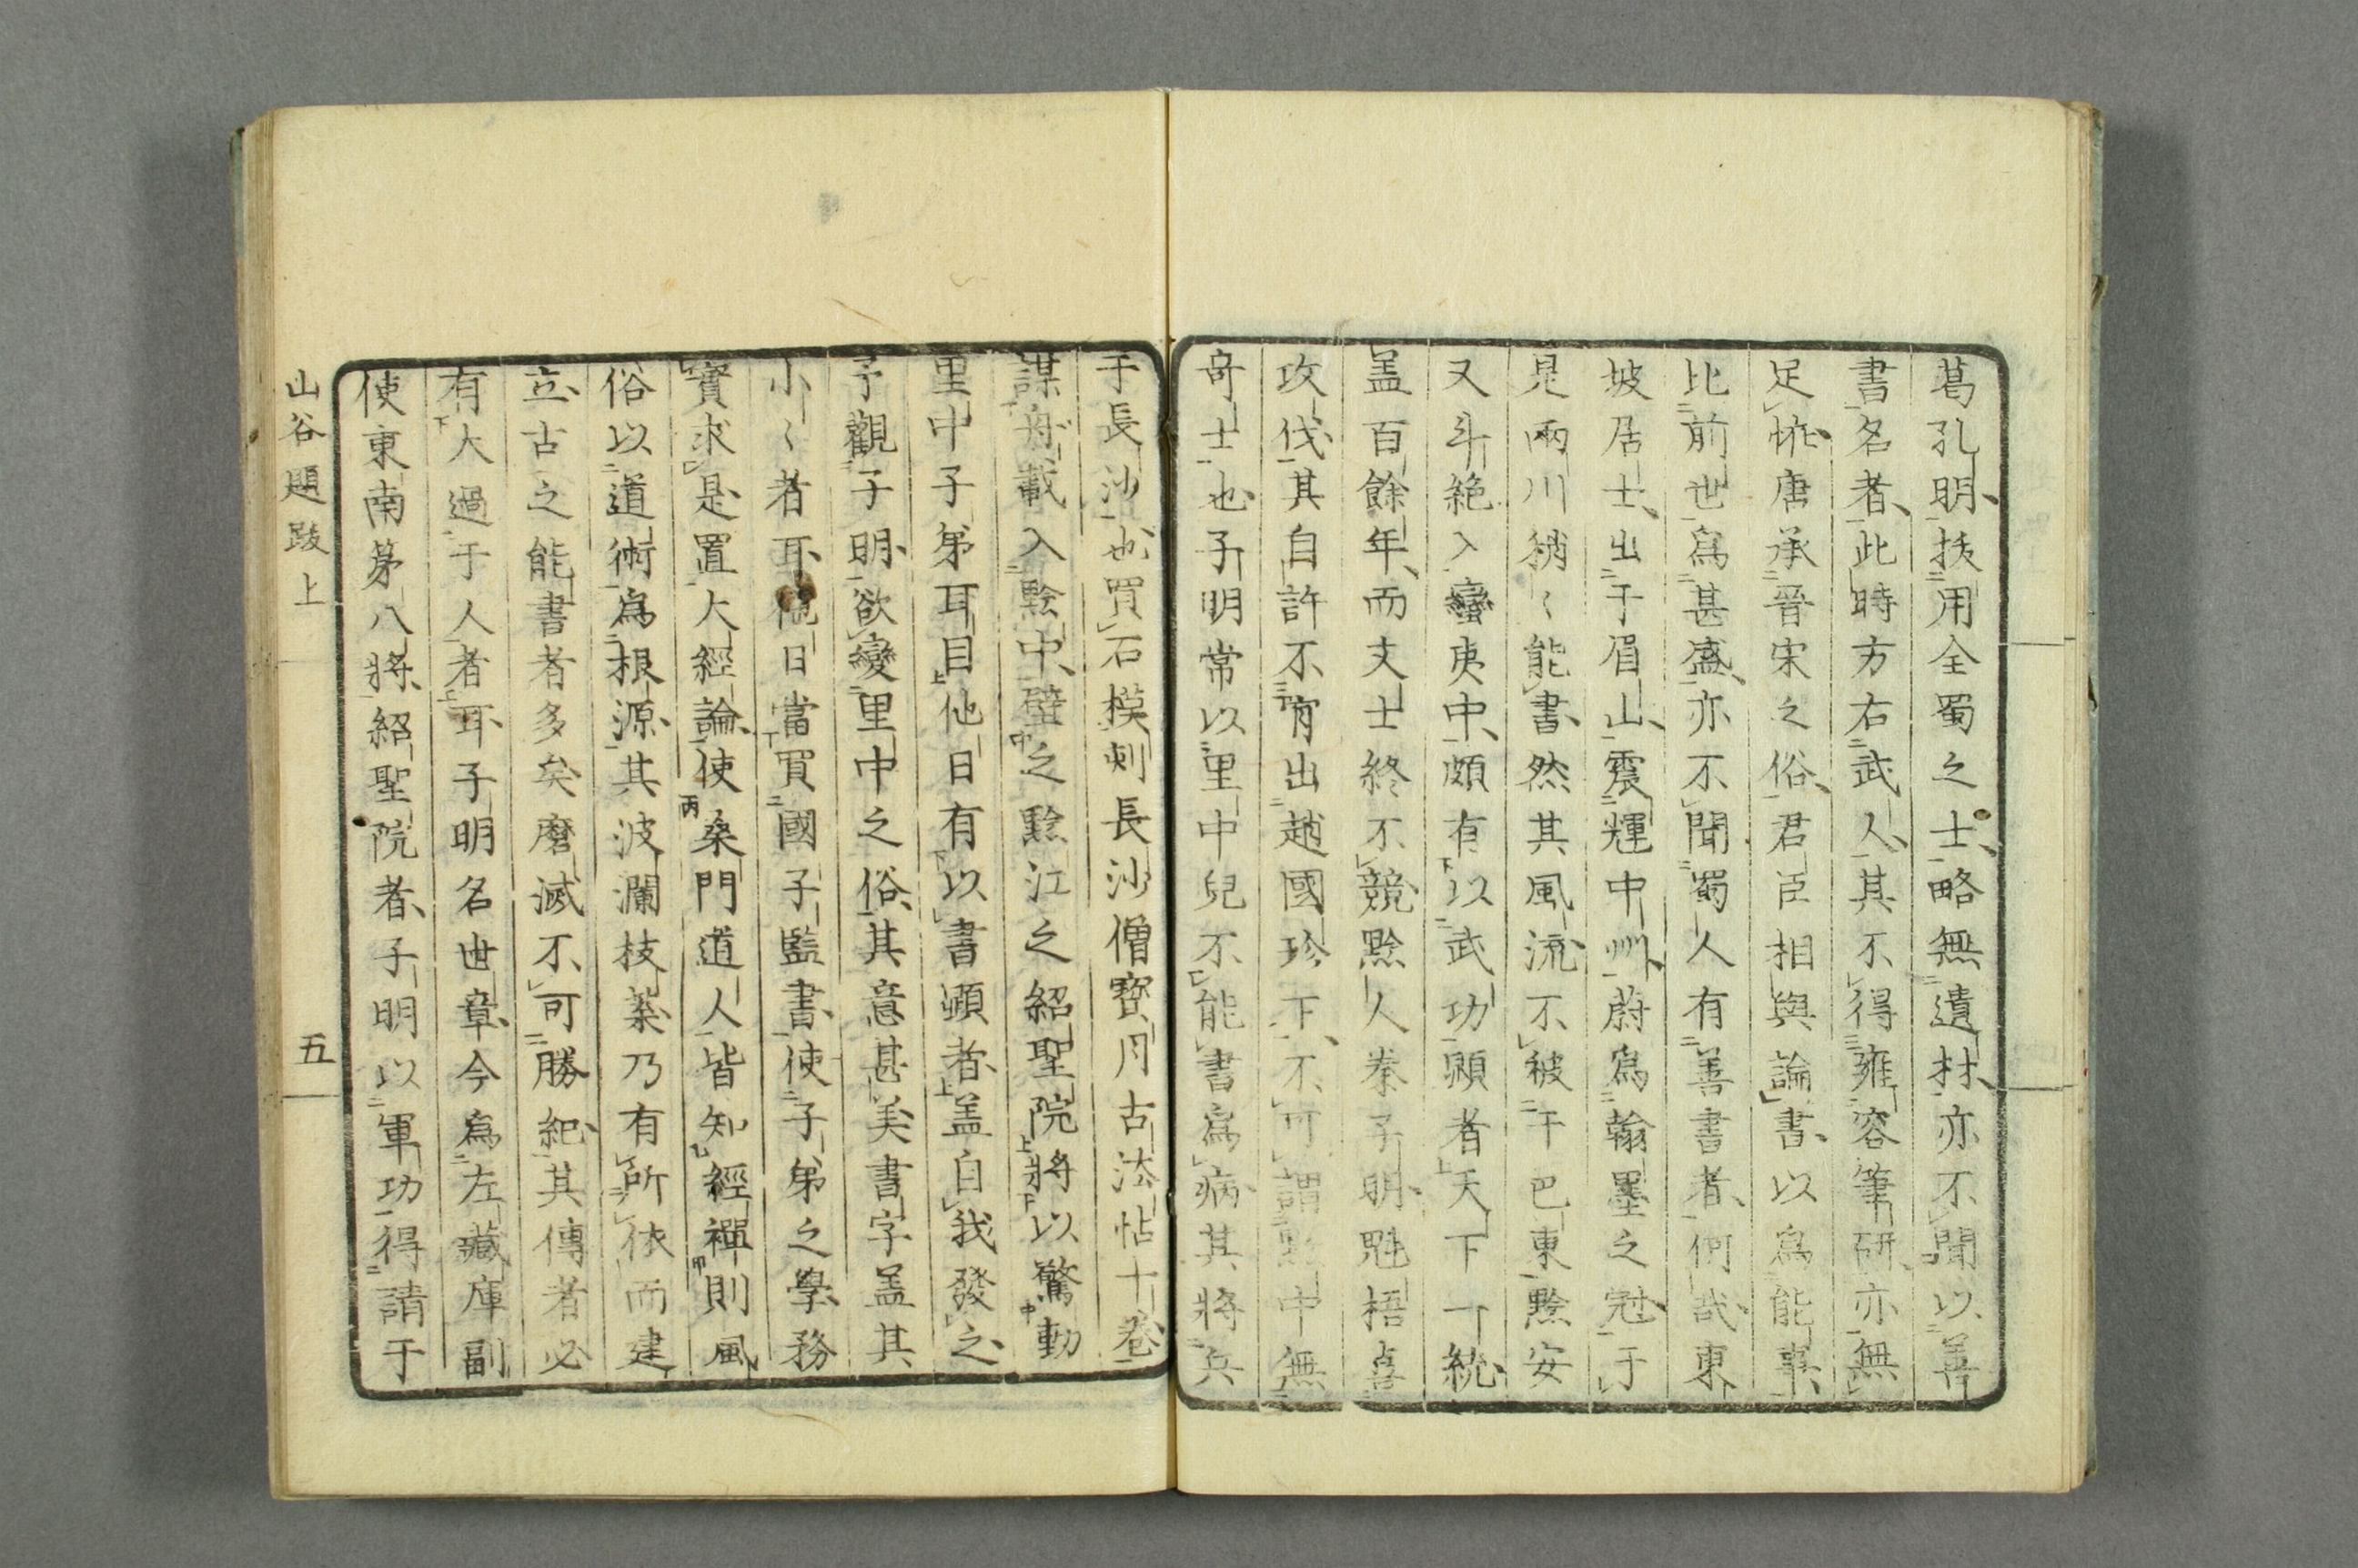 葛孔明扶用全蜀之士略無遺材亦不聞以善
書名者此時方右武人其不得雍容筆研亦無
足怪唐承晉宋之俗君臣相與論書以爲能事
比前世爲甚盛亦不聞蜀人有善書者何哉東
坡居士出于眉山震輝中州蔚爲翰墨之冠于
是兩川稍〻能書然其風流不被于巴東黔安
又斗絶入蠻夷中頗有以武功顯者天下一統
盖百餘年而文士終不競黔人秦子明魁梧喜
攻伐其自許不肯出趙國珍下不可謂黔中無
奇士也子明常以里中兒不能書爲病其將兵
于長沙也買石模刻長沙僧寶月古法帖十卷
謀舟載入黔中壁之黔江之紹聖院將以驚動
里中子弟耳目他日有以書顯者盖自我發之
予觀子明欲變里中之俗其意甚美書字盖其
小〻者耳他日當買國子監書使子弟之學務
實求是置大經論使桑門道人皆知經禪則風
俗以道術爲根源其波瀾枝葉乃有所依而建
立古之能書者多矣磨滅不可勝紀其傳者必
有大過于人者耳子明名世章今爲左藏庫副
使東南第八將紹聖院者子明以軍功得請于
山谷題跋上
五